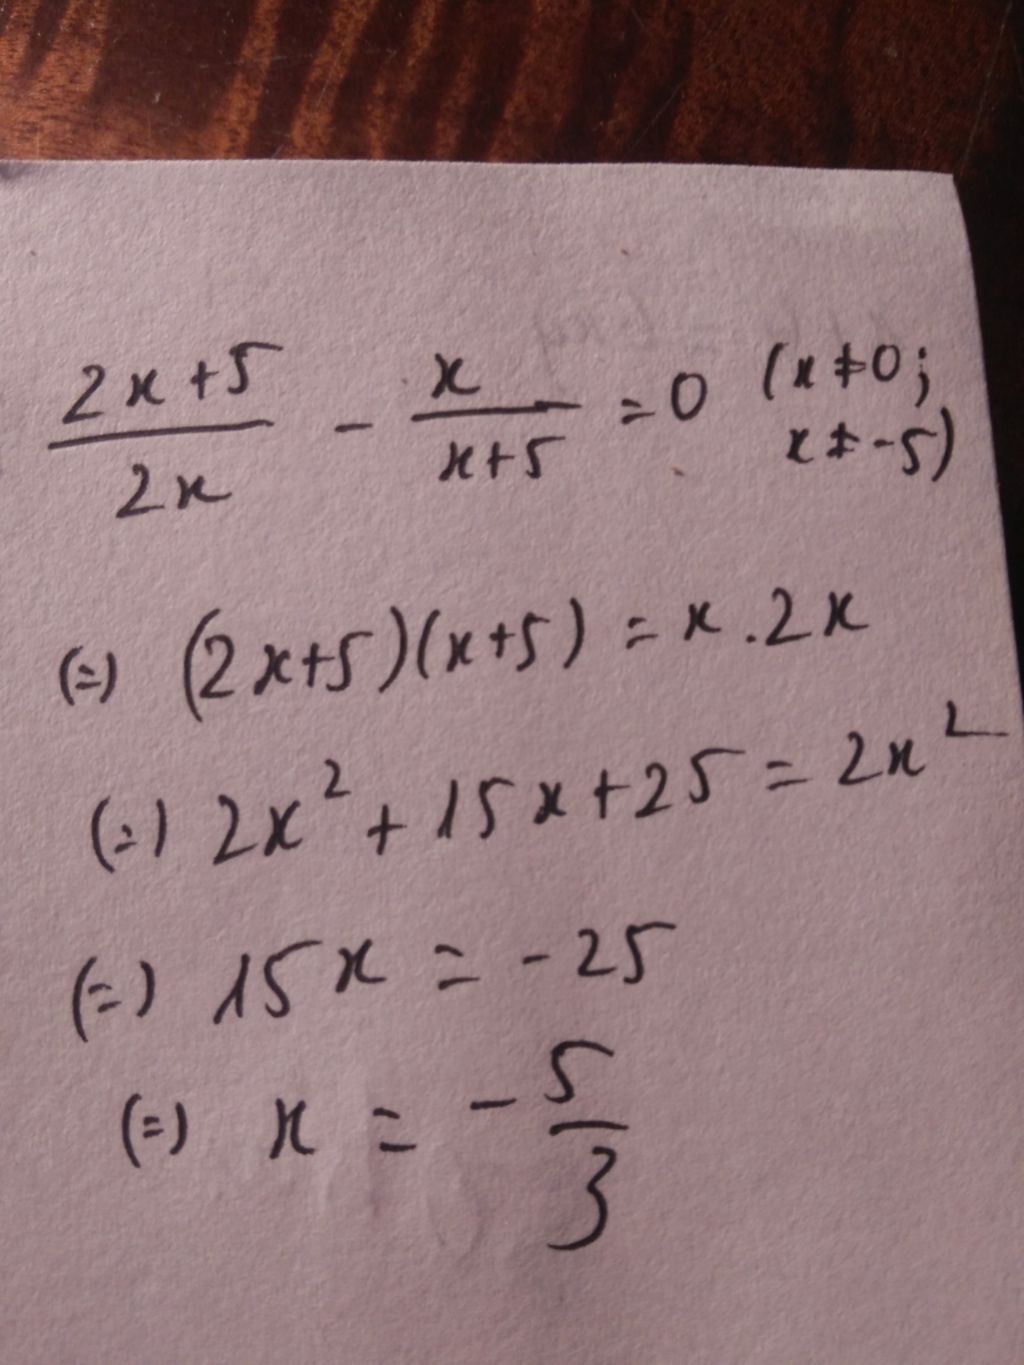 (2x+5)/(2x) - x/(x+5) = 0 (x≠0; x≠-5)
(=) (2x+5)(x+5) = x.2x
(=) 2x² + 15x + 25 = 2x²
(=) 15x = -25
(=) x = -5/3